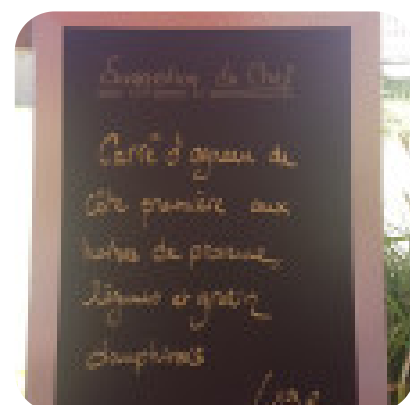 Suggestion du Chef
Carré d'agneau de
côte première aux
herbes de provence,
légumes et gratin
dauphinois